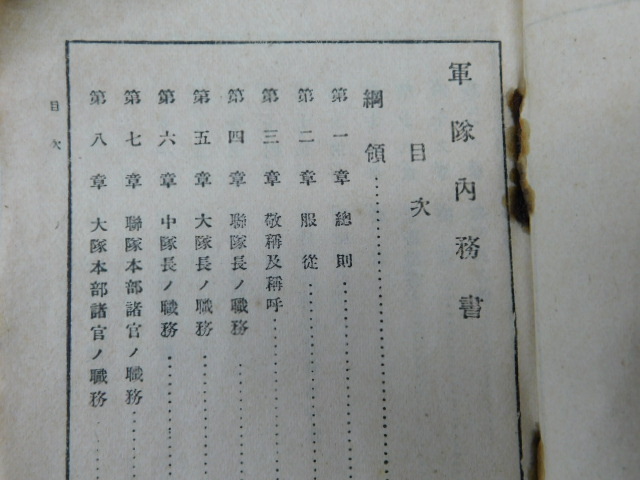 軍隊內務書
目次
綱領
第一章 總則
第二章 服從
第三章 敬稱及稱呼
第四章 聯隊長ノ職務
第五章 大隊長ノ職務
第六章 中隊長ノ職務
第七章 聯隊本部諸官ノ職務
第八章 大隊本部諸官ノ職務
目次